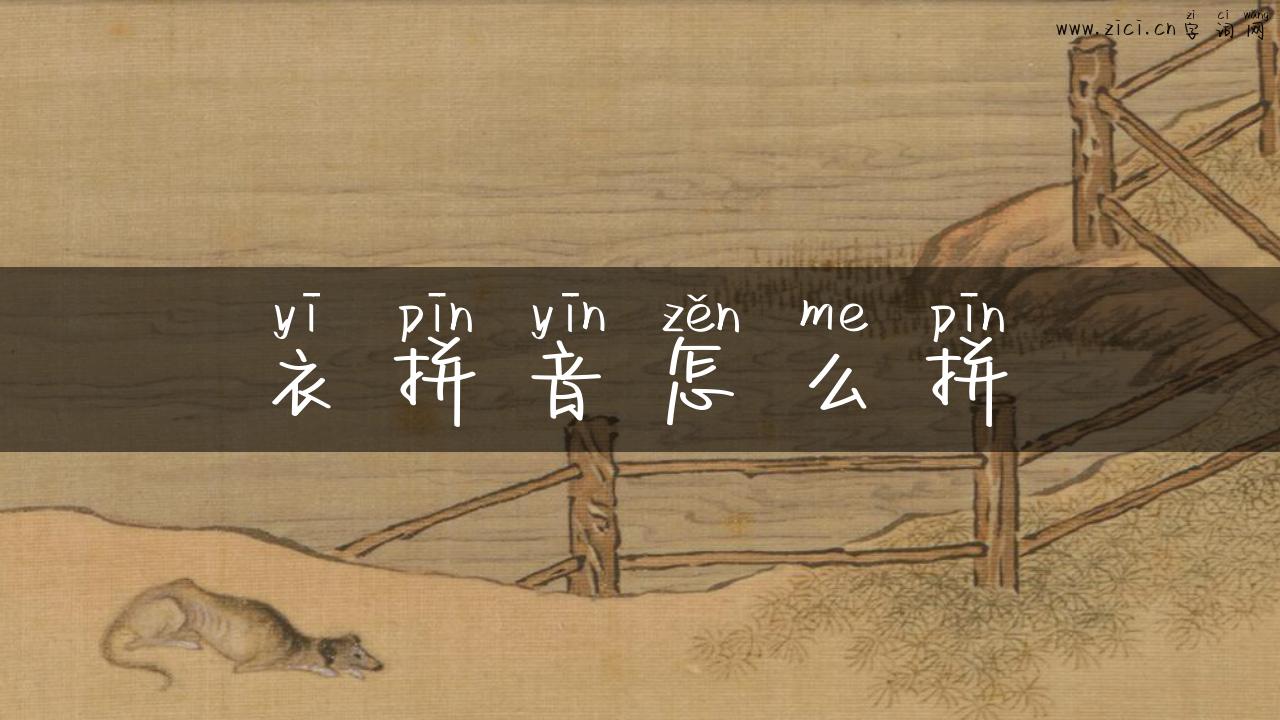 zì cí wǎng
www.zici.cn 字词网
yī pīn yīn zěn me pīn
衣拼音怎么拼